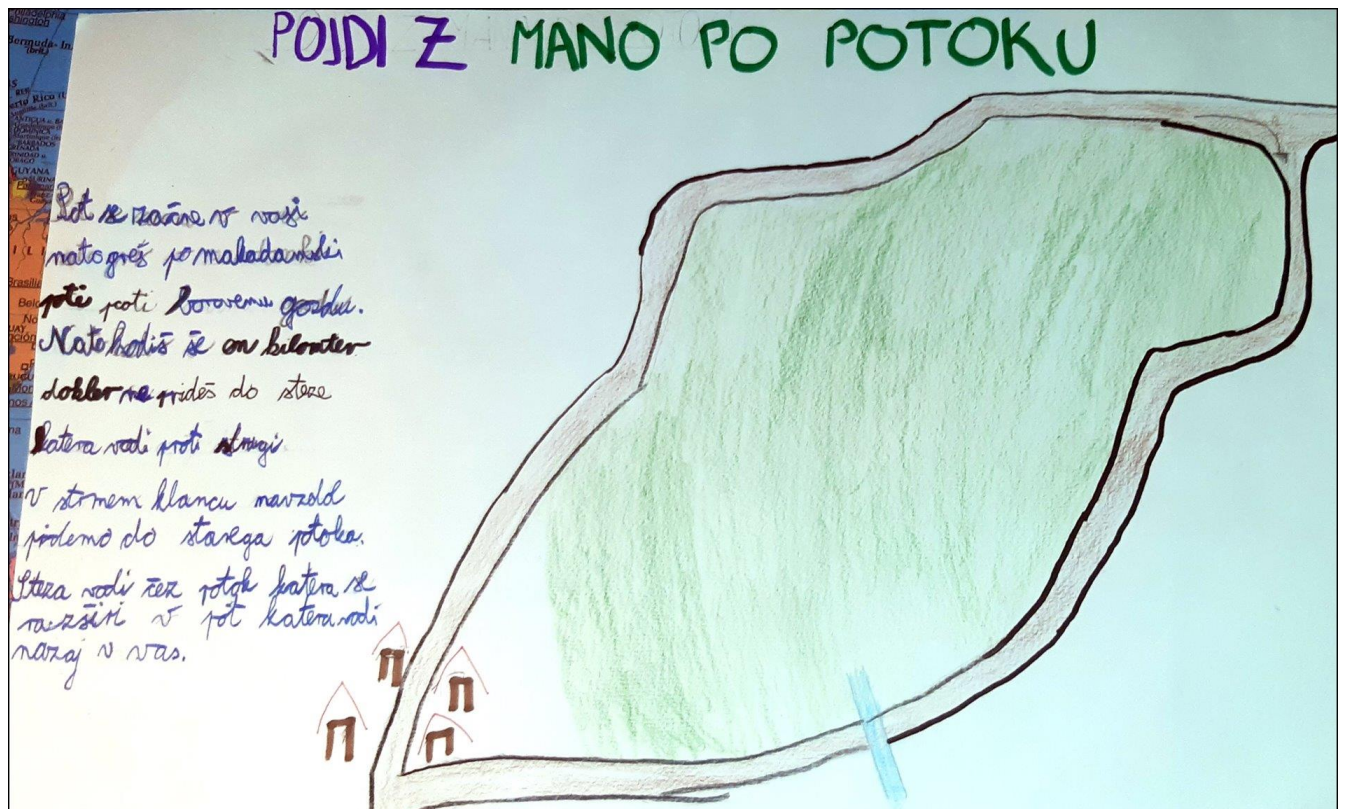 POJDI Z MANO PO POTOKU
Pot se začne v vasi
nato greš po makadamski
poti proti borovemu gozdu.
Nato hodiš še en kilometer
dokler ne prideš do steze
katera vodi proti strugi
v strmem klancu navzdol
pridemo do starega potoka.
Steza vodi čez potok katera se
razširi v pot katera vodi
nazaj v vas.
Philadelphia
Washington
Bermuda-In.
(brit.)
GUYANA
Brasilia